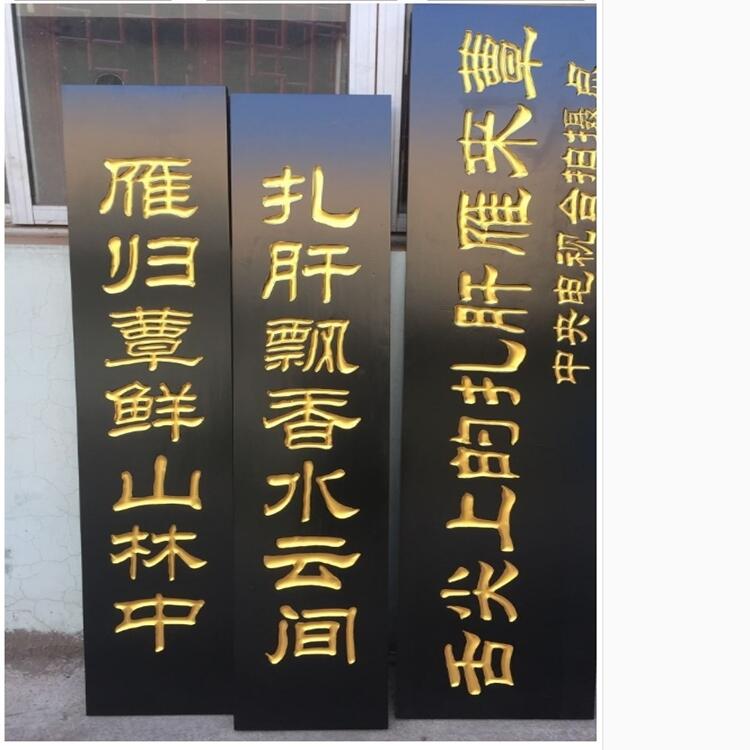 雁归蕈鲜山林中
扎肝飘香水云间
舌尖上的扎肝雁来蕈
中央电视台拍摄点